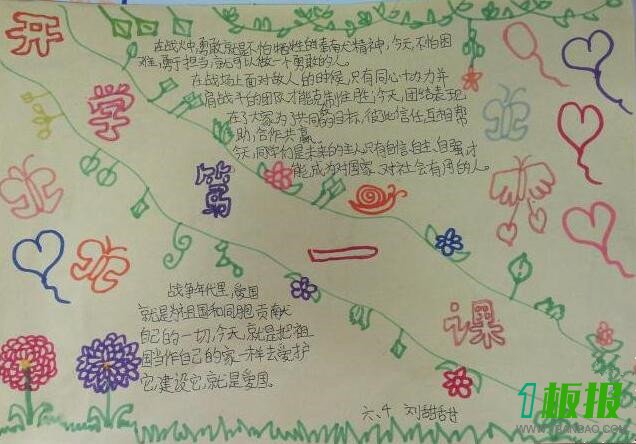 开
学
第
一
课
在战火中,勇敢就是不怕牺牲的奉献精神,今天,不怕困
难,勇于担当,就可以做一个勇敢的人。
在战场上面对敌人的时候,只有同心协力并
肩战斗的团队才能克制胜胜;今天,团结表现
在了大家为了共同的目标,彼此信任,互相帮
助,合作共赢。
今天,同学们是未来的主人只有自信、自主、自强才
能成为对国家、对社会有用的人。
战争年代里,爱国
就是为祖国和同胞贡献
自己的一切,今天,就是把祖
国当作自己的家一样去爱护
它,建设它,就是爱国。
六、4 刘甜甜
1板报
WWW.1BANBAO.COM